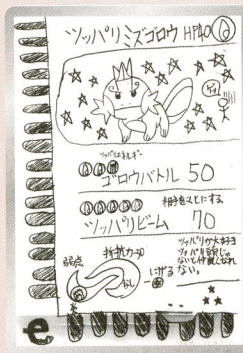 ツッパリミズゴロウ HP40
ツッパリエネルギー
ゴロウバトル 50
相手をひとにする
ツッパリビーム 70
弱点
抵抗力
なし
にげる
ツッパリが大好き
ツッパリ頭じゃ
ないと仲間じなれ
ない。
e